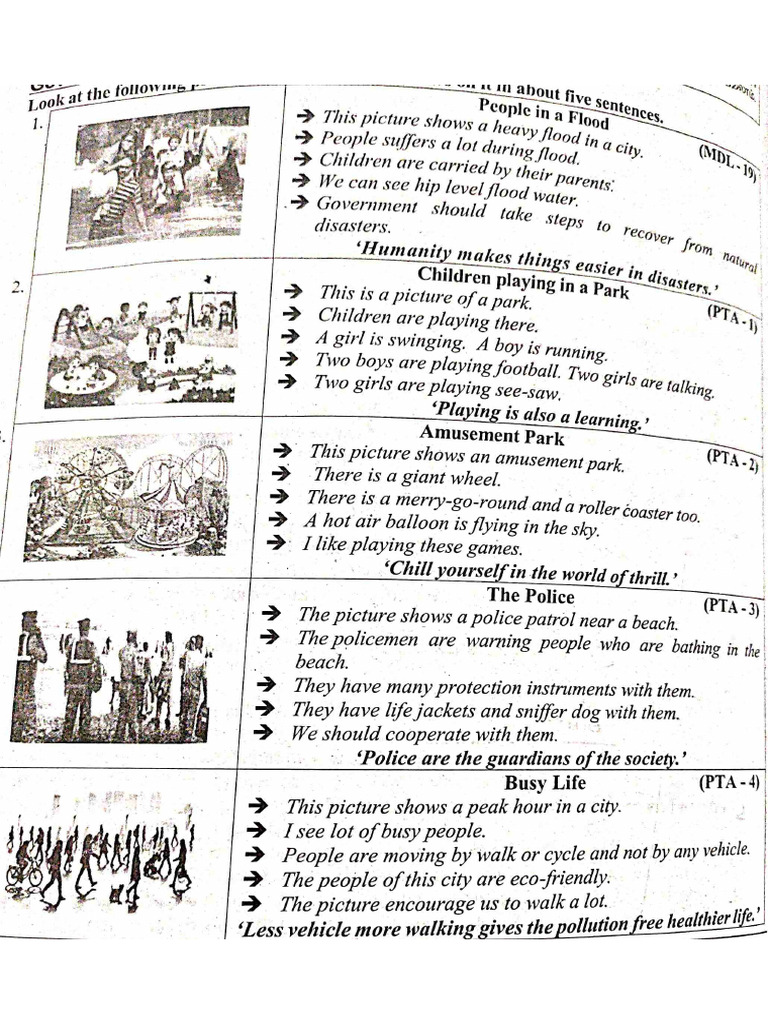 Look at the following
on it in about five sentences.
1.
People in a Flood
(MDL - 19)
➔ This picture shows a heavy flood in a city.
➔ People suffers a lot during flood.
➔ Children are carried by their parents.
➔ We can see hip level flood water.
➔ Government should take steps to recover from natural
disasters.
'Humanity makes things easier in disasters.'
2.
Children playing in a Park
(PTA - 1)
➔ This is a picture of a park.
➔ Children are playing there.
➔ A girl is swinging. A boy is running.
➔ Two boys are playing football. Two girls are talking.
➔ Two girls are playing see-saw.
'Playing is also a learning.'
Amusement Park
(PTA - 2)
➔ This picture shows an amusement park.
➔ There is a giant wheel.
➔ There is a merry-go-round and a roller coaster too.
➔ A hot air balloon is flying in the sky.
➔ I like playing these games.
'Chill yourself in the world of thrill.'
The Police
(PTA - 3)
➔ The picture shows a police patrol near a beach.
➔ The policemen are warning people who are bathing in the
beach.
➔ They have many protection instruments with them.
➔ They have life jackets and sniffer dog with them.
➔ We should cooperate with them.
'Police are the guardians of the society.'
Busy Life
(PTA - 4)
➔ This picture shows a peak hour in a city.
➔ I see lot of busy people.
➔ People are moving by walk or cycle and not by any vehicle.
➔ The people of this city are eco-friendly.
➔ The picture encourage us to walk a lot.
'Less vehicle more walking gives the pollution free healthier life.'